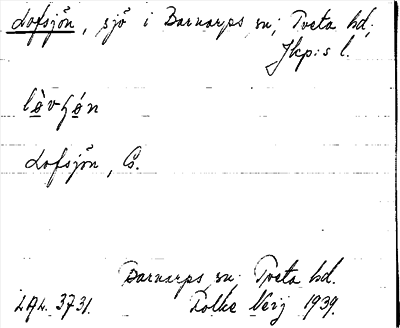 Lofsjön, sjö i Barnarps sn; Tveta hd;
Jkp:s l.
lòvʃón
Lofsjön, Cs.
Barnarps sn. Tveta hd.
LAL. 3731. Folke Neij 1939.